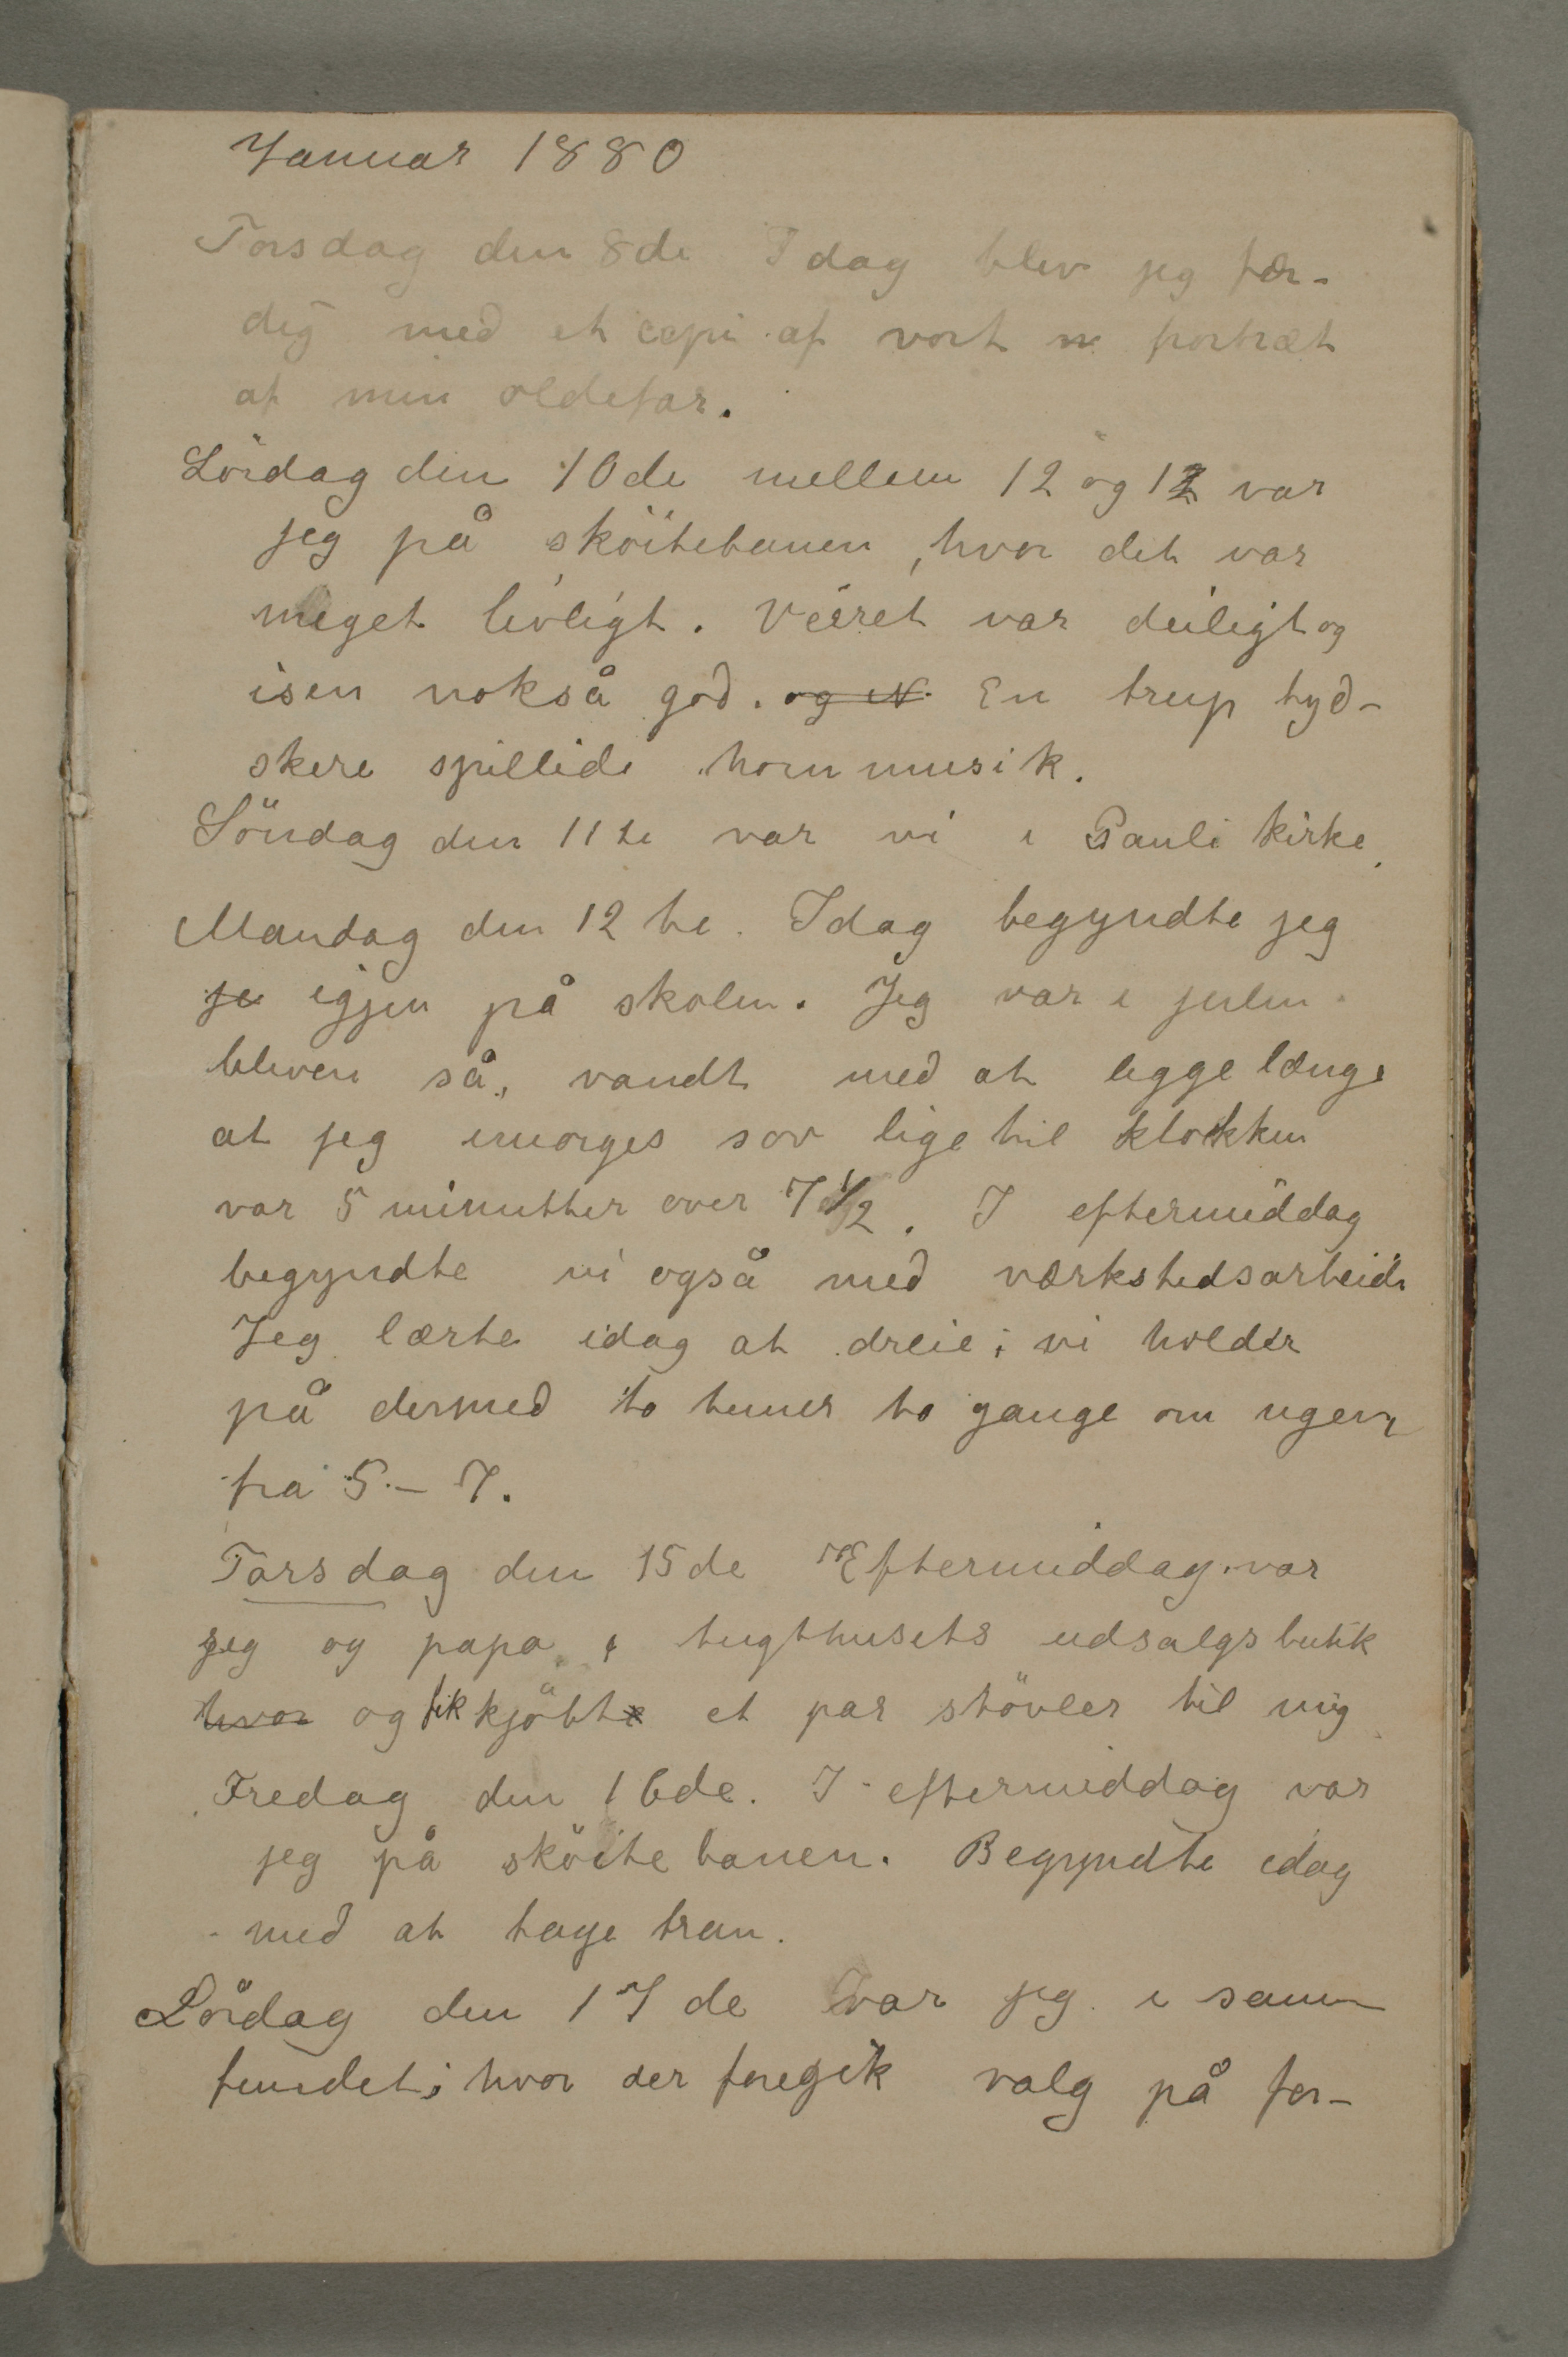 Januar 1880
Torsdag den 8de I dag blev jeg fær-
dig med et copi af vort portræt
af min oldefar.
Lördag den 10de mellem 12 og 12 var
jeg på sköitebanen, hvor det var
meget livligt. Veiret var deiligt og
isen nokså god. og N En trup tyd-
skere spillede hornmusik.
Söndag den 11te var vi i Pauli kirke.
Mandag den 12te. Idag begyndte jeg
je igjen på skolen. Jeg var i julen
bleven så, vandt med at ligge længe
at jeg imorges sov lige til klokken
var 5 minutter over 7 1/2. I eftermiddag
begyndte vi også med værkstedsarbeide
Jeg lærte idag at dreie; vi holder
på dermed to timer to gange om ugen,
fra 5-7.
Torsdag den 15de Eftermiddag var
jeg og papa i tugthusets udsalgsbutik
hvor og fik kjöbt et par stövler til mig
Fredag den 16de. I eftermiddag var
jeg på sköitebanen. Begyndte idag
med at tage tran.
Lördag den 17de var jeg i sam-
fundet; hvor der foregik valg på for-